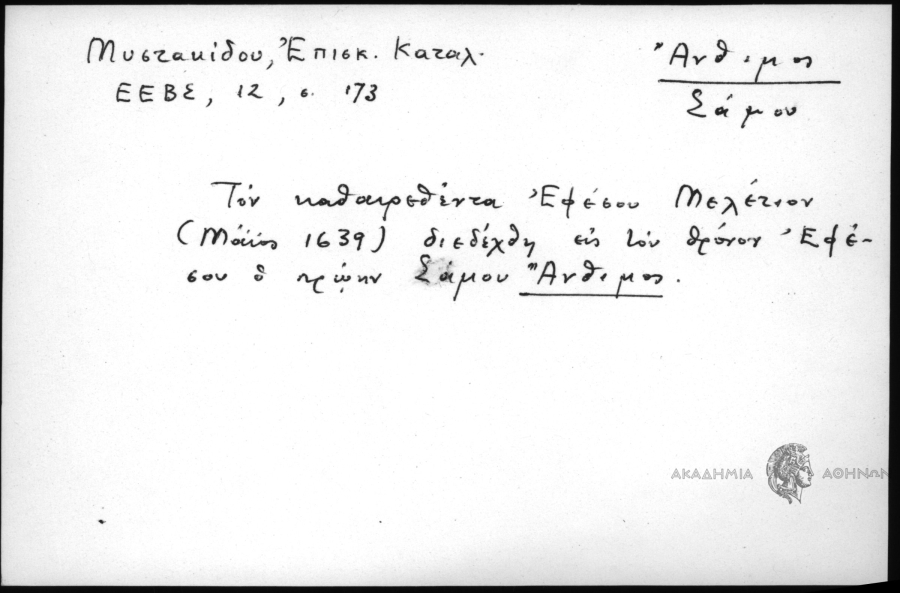 Μυστακίδου, Ἐπισκ. Καταλ.
ΕΕΒΣ, 12, σ. 173
Ἄνθιμος
Σάμου
Τὸν καθαιρεθέντα Ἐφέσου Μελέτιον
(Μάϊος 1639) διεδέχθη εἰς τὸν θρόνον Ἐφέ-
σου ὁ πρῴην Σάμου Ἄνθιμος.
ΑΚΑΔΗΜΙΑ ΑΘΗΝΩΝ